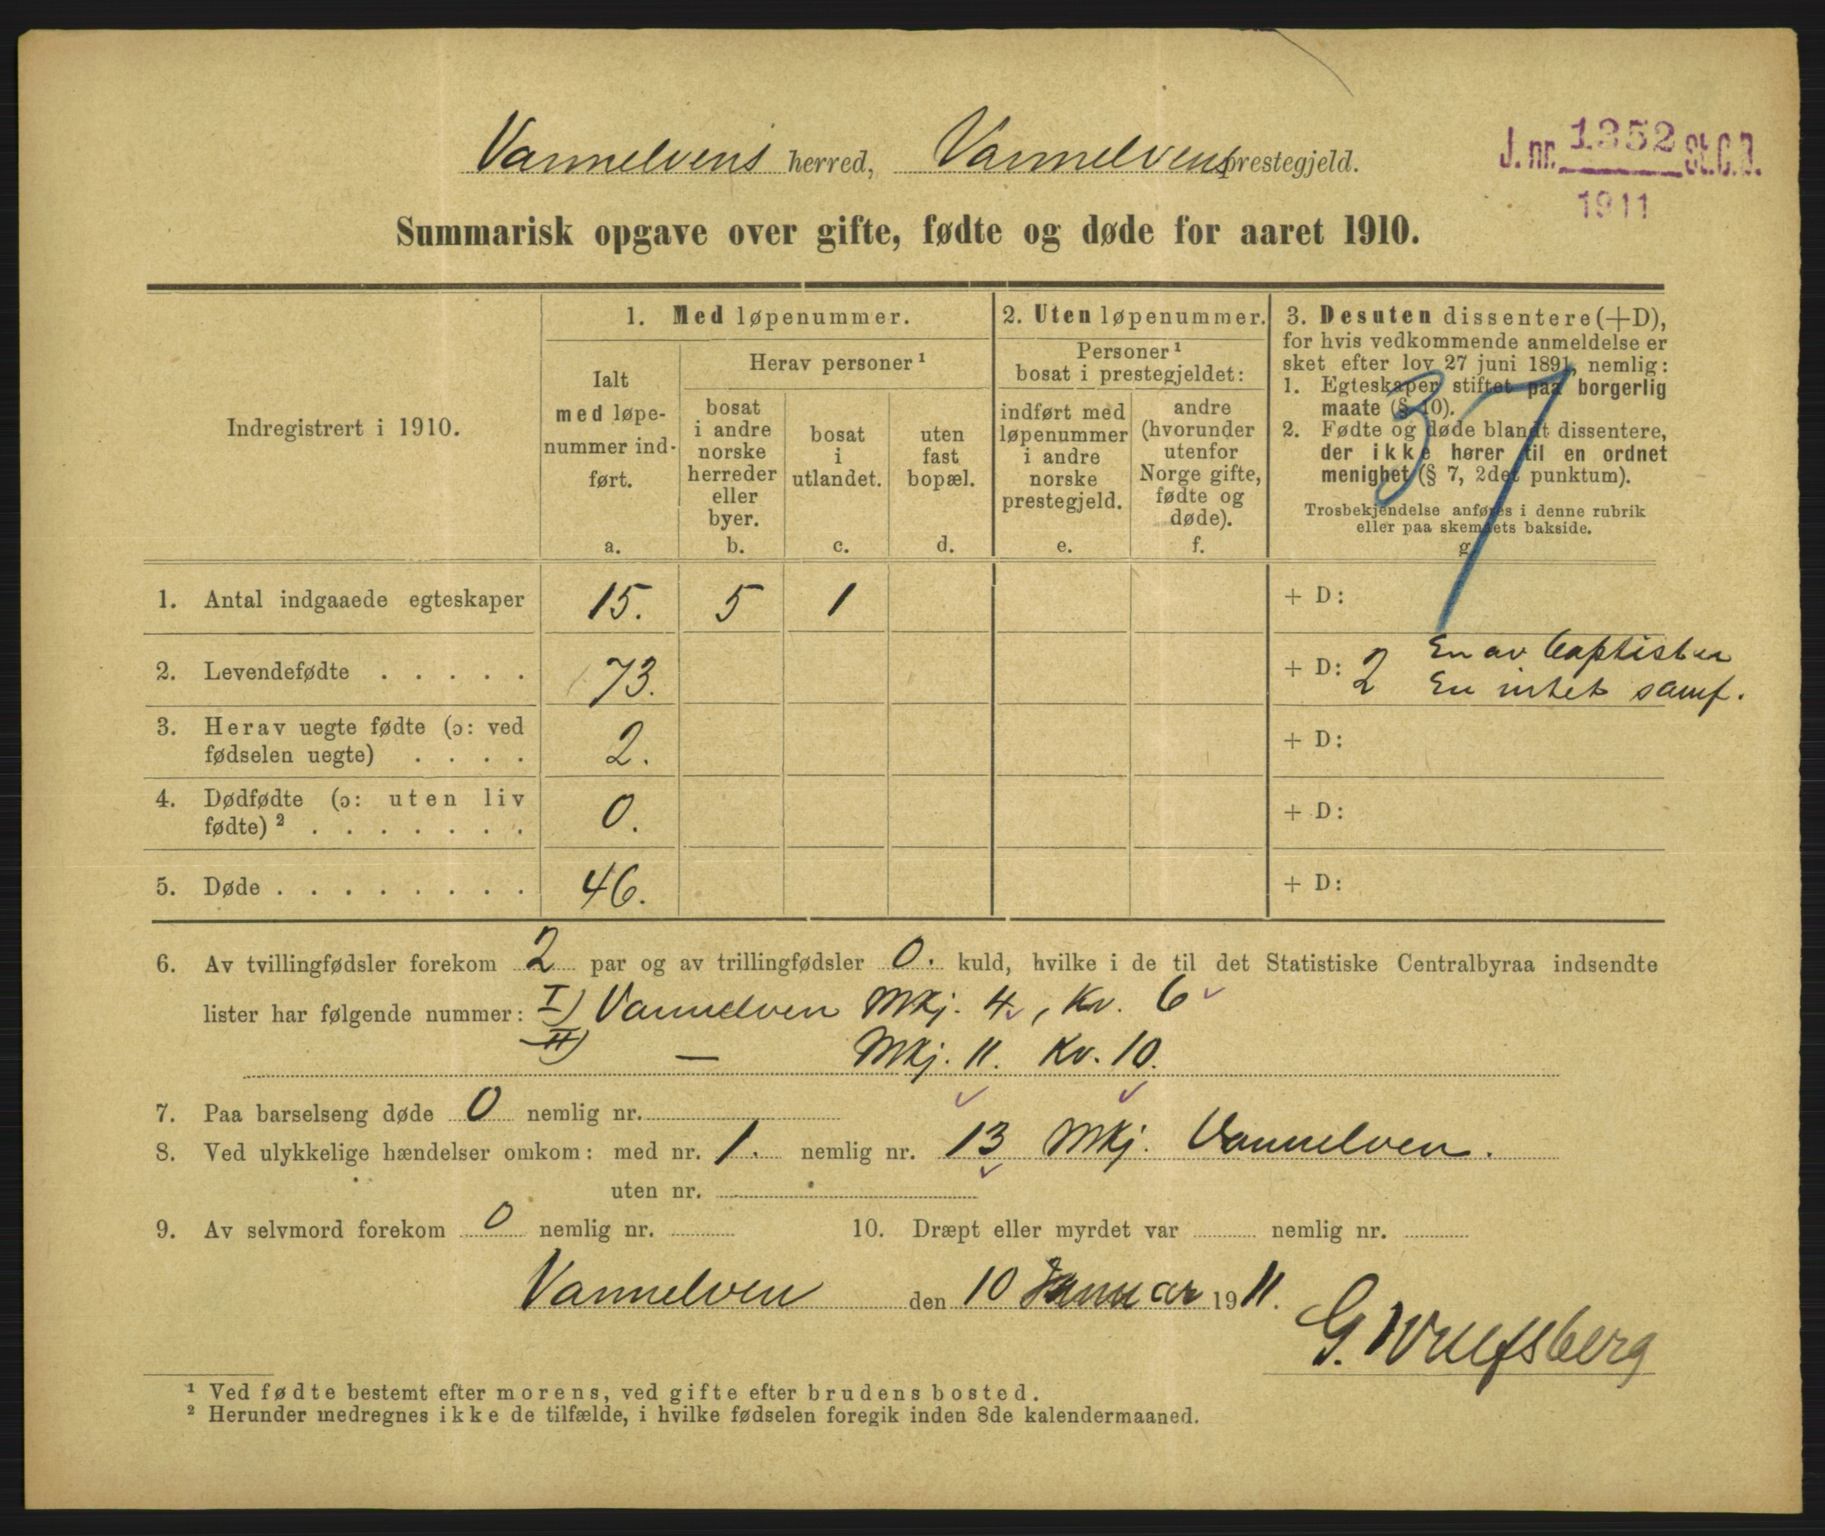 Vannelvens herred, Vannelvens prestegjeld.
J. nr. 1352 St.C.B.
1911
Summarisk opgave over gifte, fødte og døde for aaret 1910.
Indregistrert i 1910.
1. Med løpenummer.
Ialt
med løpe-
nummer ind-
ført.
a.
Herav personer ¹
bosat
i andre
norske
herreder
eller
byer.
b.
bosat
i
utlandet.
c.
uten
fast
bopæl.
d.
2. Uten løpenummer.
Personer ¹
bosat i prestegjeldet:
indført med
løpenummer
i andre
norske
prestegjeld.
e.
andre
(hvorunder
utenfor
Norge gifte,
fødte og
døde).
f.
3. Desuten dissentere (+D),
for hvis vedkommende anmeldelse er
sket efter lov 27 juni 1891, nemlig:
1. Egteskaper stiftet paa borgerlig
maate (§ 10).
2. Fødte og døde blandt dissentere,
der ikke hører til en ordnet
menighet (§ 7, 2det punktum).
Trosbekjendelse anføres i denne rubrik
eller paa skemaets bakside.
g.
37
1. Antal indgaaede egteskaper 15. 5 1 + D:
2. Levendefødte . . . . . 73. + D: 2 En av baptister
En intet samf.
3. Herav uegte fødte (ɔ: ved
fødselen uegte) . . . . 2. + D:
4. Dødfødte (ɔ: uten liv
fødte) ² . . . . . . . 0. + D:
5. Døde . . . . . . . . 46. + D:
6. Av tvillingfødsler forekom 2 par og av trillingfødsler 0. kuld, hvilke i de til det Statistiske Centralbyraa indsendte
lister har følgende nummer: I) Vannelven Mkj. 4, Kv. 6
II) — Mkj. 11. Kv. 10.
7. Paa barselseng døde 0 nemlig nr.
8. Ved ulykkelige hændelser omkom: med nr. 1. nemlig nr. 13 Mkj. Vannelven.
uten nr.
9. Av selvmord forekom 0 nemlig nr. 10. Dræpt eller myrdet var nemlig nr.
Vannelven den 10 Januar 1911.
G. Wulfsberg
¹ Ved fødte bestemt efter morens, ved gifte efter brudens bosted.
² Herunder medregnes ikke de tilfælde, i hvilke fødselen foregik inden 8de kalendermaaned.